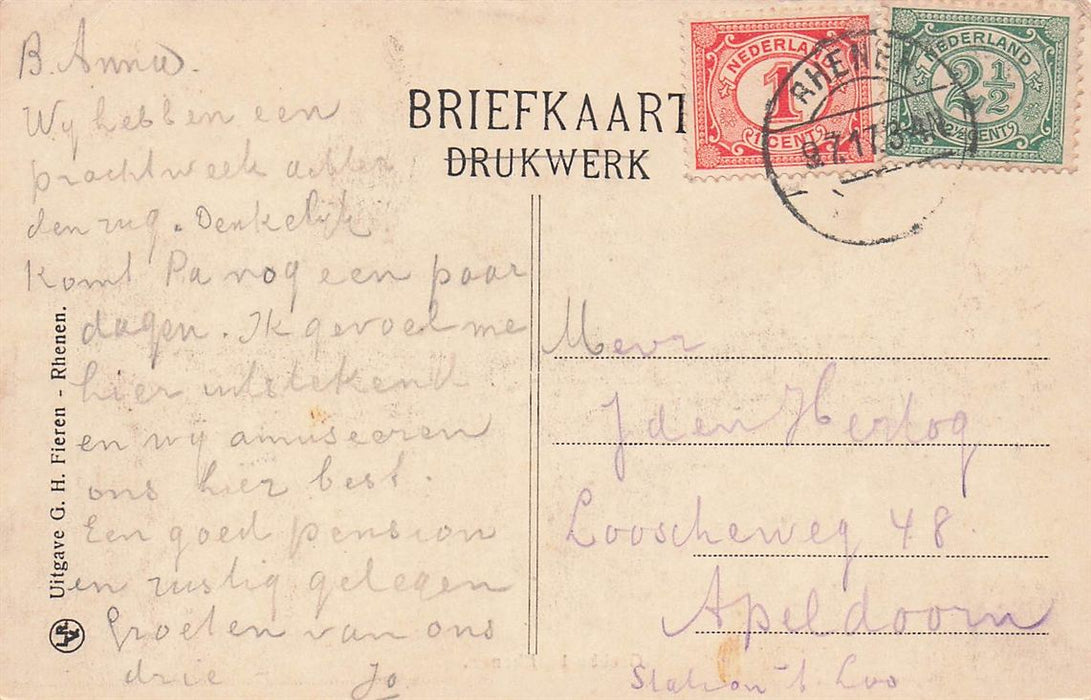 B. Anna.
Wy hebben een
prachtweek achter
den rug. Denkelijk
komt Pa nog een paar
dagen. Ik gevoel me
hier uitstekend
en wy amuseeren
ons hier best.
Een goed pension
en rustig gelegen
Groeten van ons
drie - Jo
Uitgave G. H. Fieren - Rhenen.
BRIEFKAART
DRUKWERK
NEDERLAND
1
1 CENT
NEDERLAND
2 1/2
2 1/2 CENT
RHENEN
9.7.17.8-4N
Mevr
J den Hertog
Looscheweg 48
Apeldoorn
Station 't Loo